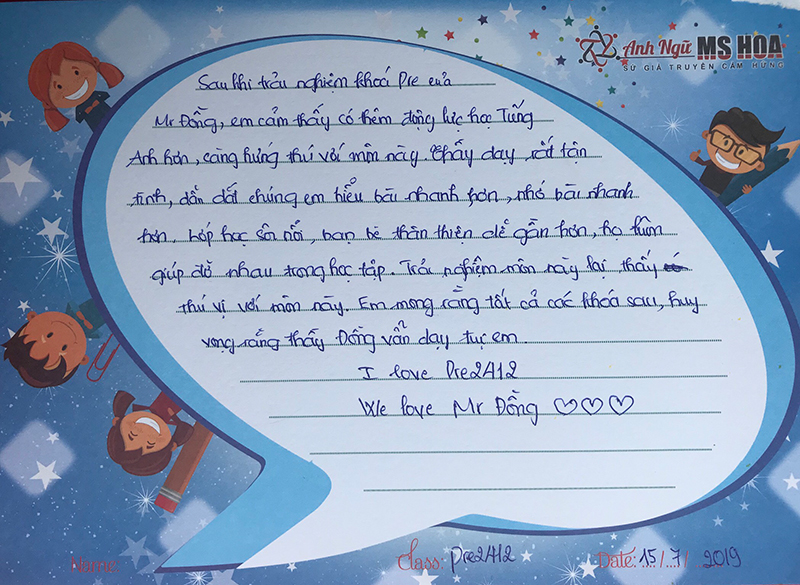 Anh Ngữ MS HOA
SỨ GIẢ TRUYỀN CẢM HỨNG
Sau khi trải nghiệm khoá Pre của
Mr Đồng, em cảm thấy có thêm động lực học Tiếng
Anh hơn, càng hứng thú với môn này. Thầy dạy rất tận
tình, dẫn dắt chúng em hiểu bài nhanh hơn, nhớ bài nhanh
hơn. Lớp học sôi nổi, bạn bè thân thiện dễ gần hơn, họ luôn
giúp đỡ nhau trong học tập. Trải nghiệm môn này lại thấy
thú vị với môn này. Em mong rằng tất cả các khoá sau, huy
vọng rằng thầy Đồng vẫn dạy tục em.
I love Pre2412
We love Mr Đồng ♡♡♡
Name:
Class: Pre2412
Date: 15/7/2019